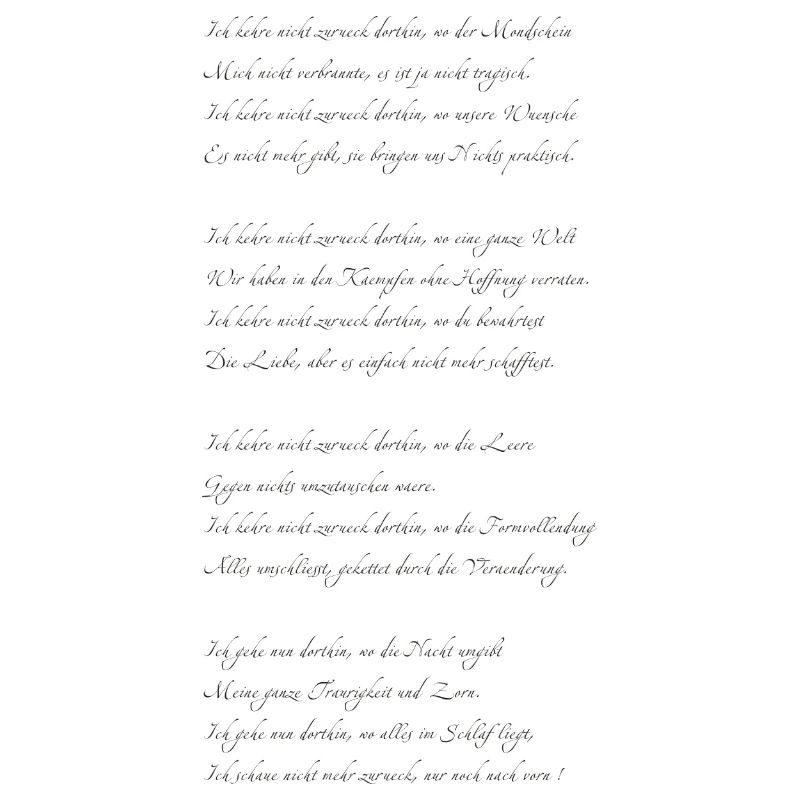 Ich kehre nicht zurueck dorthin, wo der Mondschein
Mich nicht verbrannte, es ist ja nicht tragisch.
Ich kehre nicht zurueck dorthin, wo unsere Wuensche
Es nicht mehr gibt, sie bringen uns Nichts praktisch.
Ich kehre nicht zurueck dorthin, wo eine ganze Welt
Wir haben in den Kaempfen ohne Hoffnung verraten.
Ich kehre nicht zurueck dorthin, wo du bewahrtest
Die Liebe, aber es einfach nicht mehr schafftest.
Ich kehre nicht zurueck dorthin, wo die Leere
Gegen nichts umzutauschen waere.
Ich kehre nicht zurueck dorthin, wo die Formvollendung
Alles umschliesst, gekettet durch die Veraenderung.
Ich gehe nun dorthin, wo die Nacht umgibt
Meine ganze Traurigkeit und Zorn.
Ich gehe nun dorthin, wo alles im Schlaf liegt,
Ich schaue nicht mehr zurueck, nur noch nach vorn !